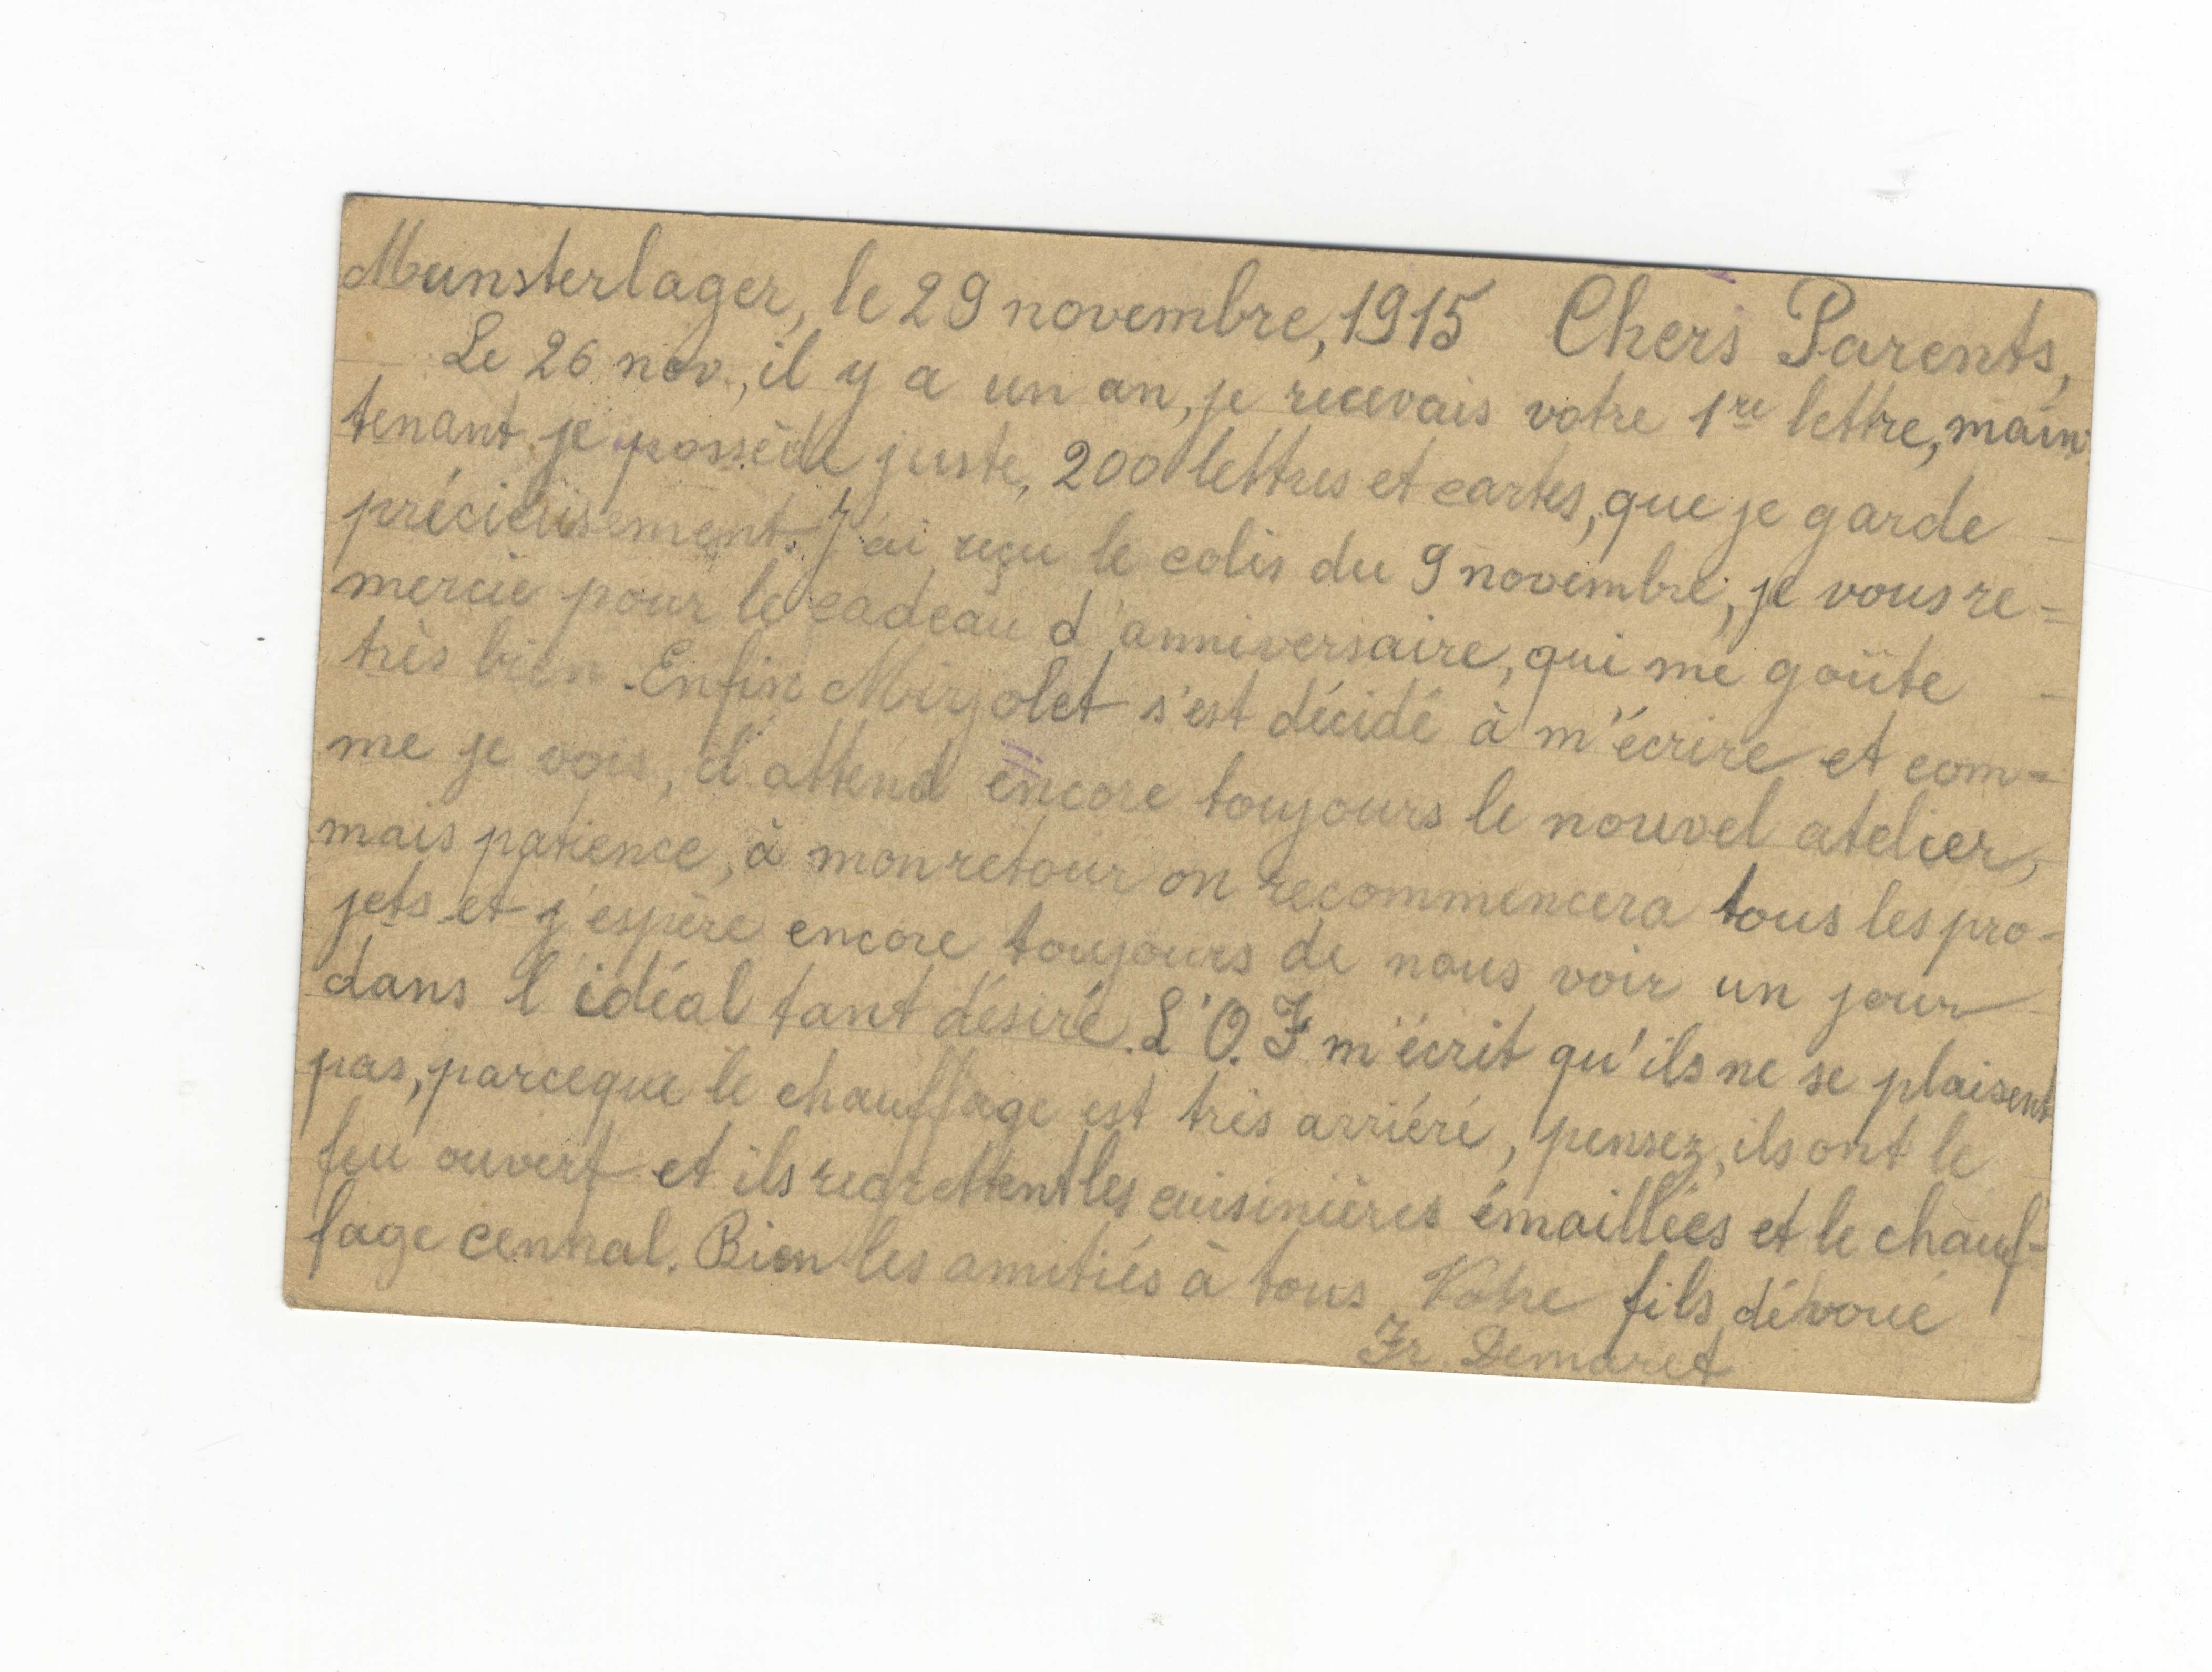 Munsterlager, le 29 novembre, 1915 Chers Parents,
Le 26 nov., il y a un an, je recevais votre 1re lettre, main
tenant je possède juste, 200 lettres et cartes, que je garde
précieusement. J'ai reçu le colis du 9 novembre, je vous re=
mercie pour le cadeau d'anniversaire, qui me goûte
très bien. Enfin s'est décidé à m'écrire et com=
me je vois, il attend encore toujours le nouvel atelier,
mais patience, à mon retour on recommencera tous les pro-
jets et j'espère encore toujours de nous voir un jour
dans l'idéal tant désiré. L'O. F m'écrit qu'ils ne se plaisent
pas, parceque le chauffage est très arriéré, pensez, ils ont le
feu ouvert et ils regrettent les cuisinières émaillées et le chauf-
fage central. Bien les amitiés à tous Votre fils dévoué
Fr. Demaret